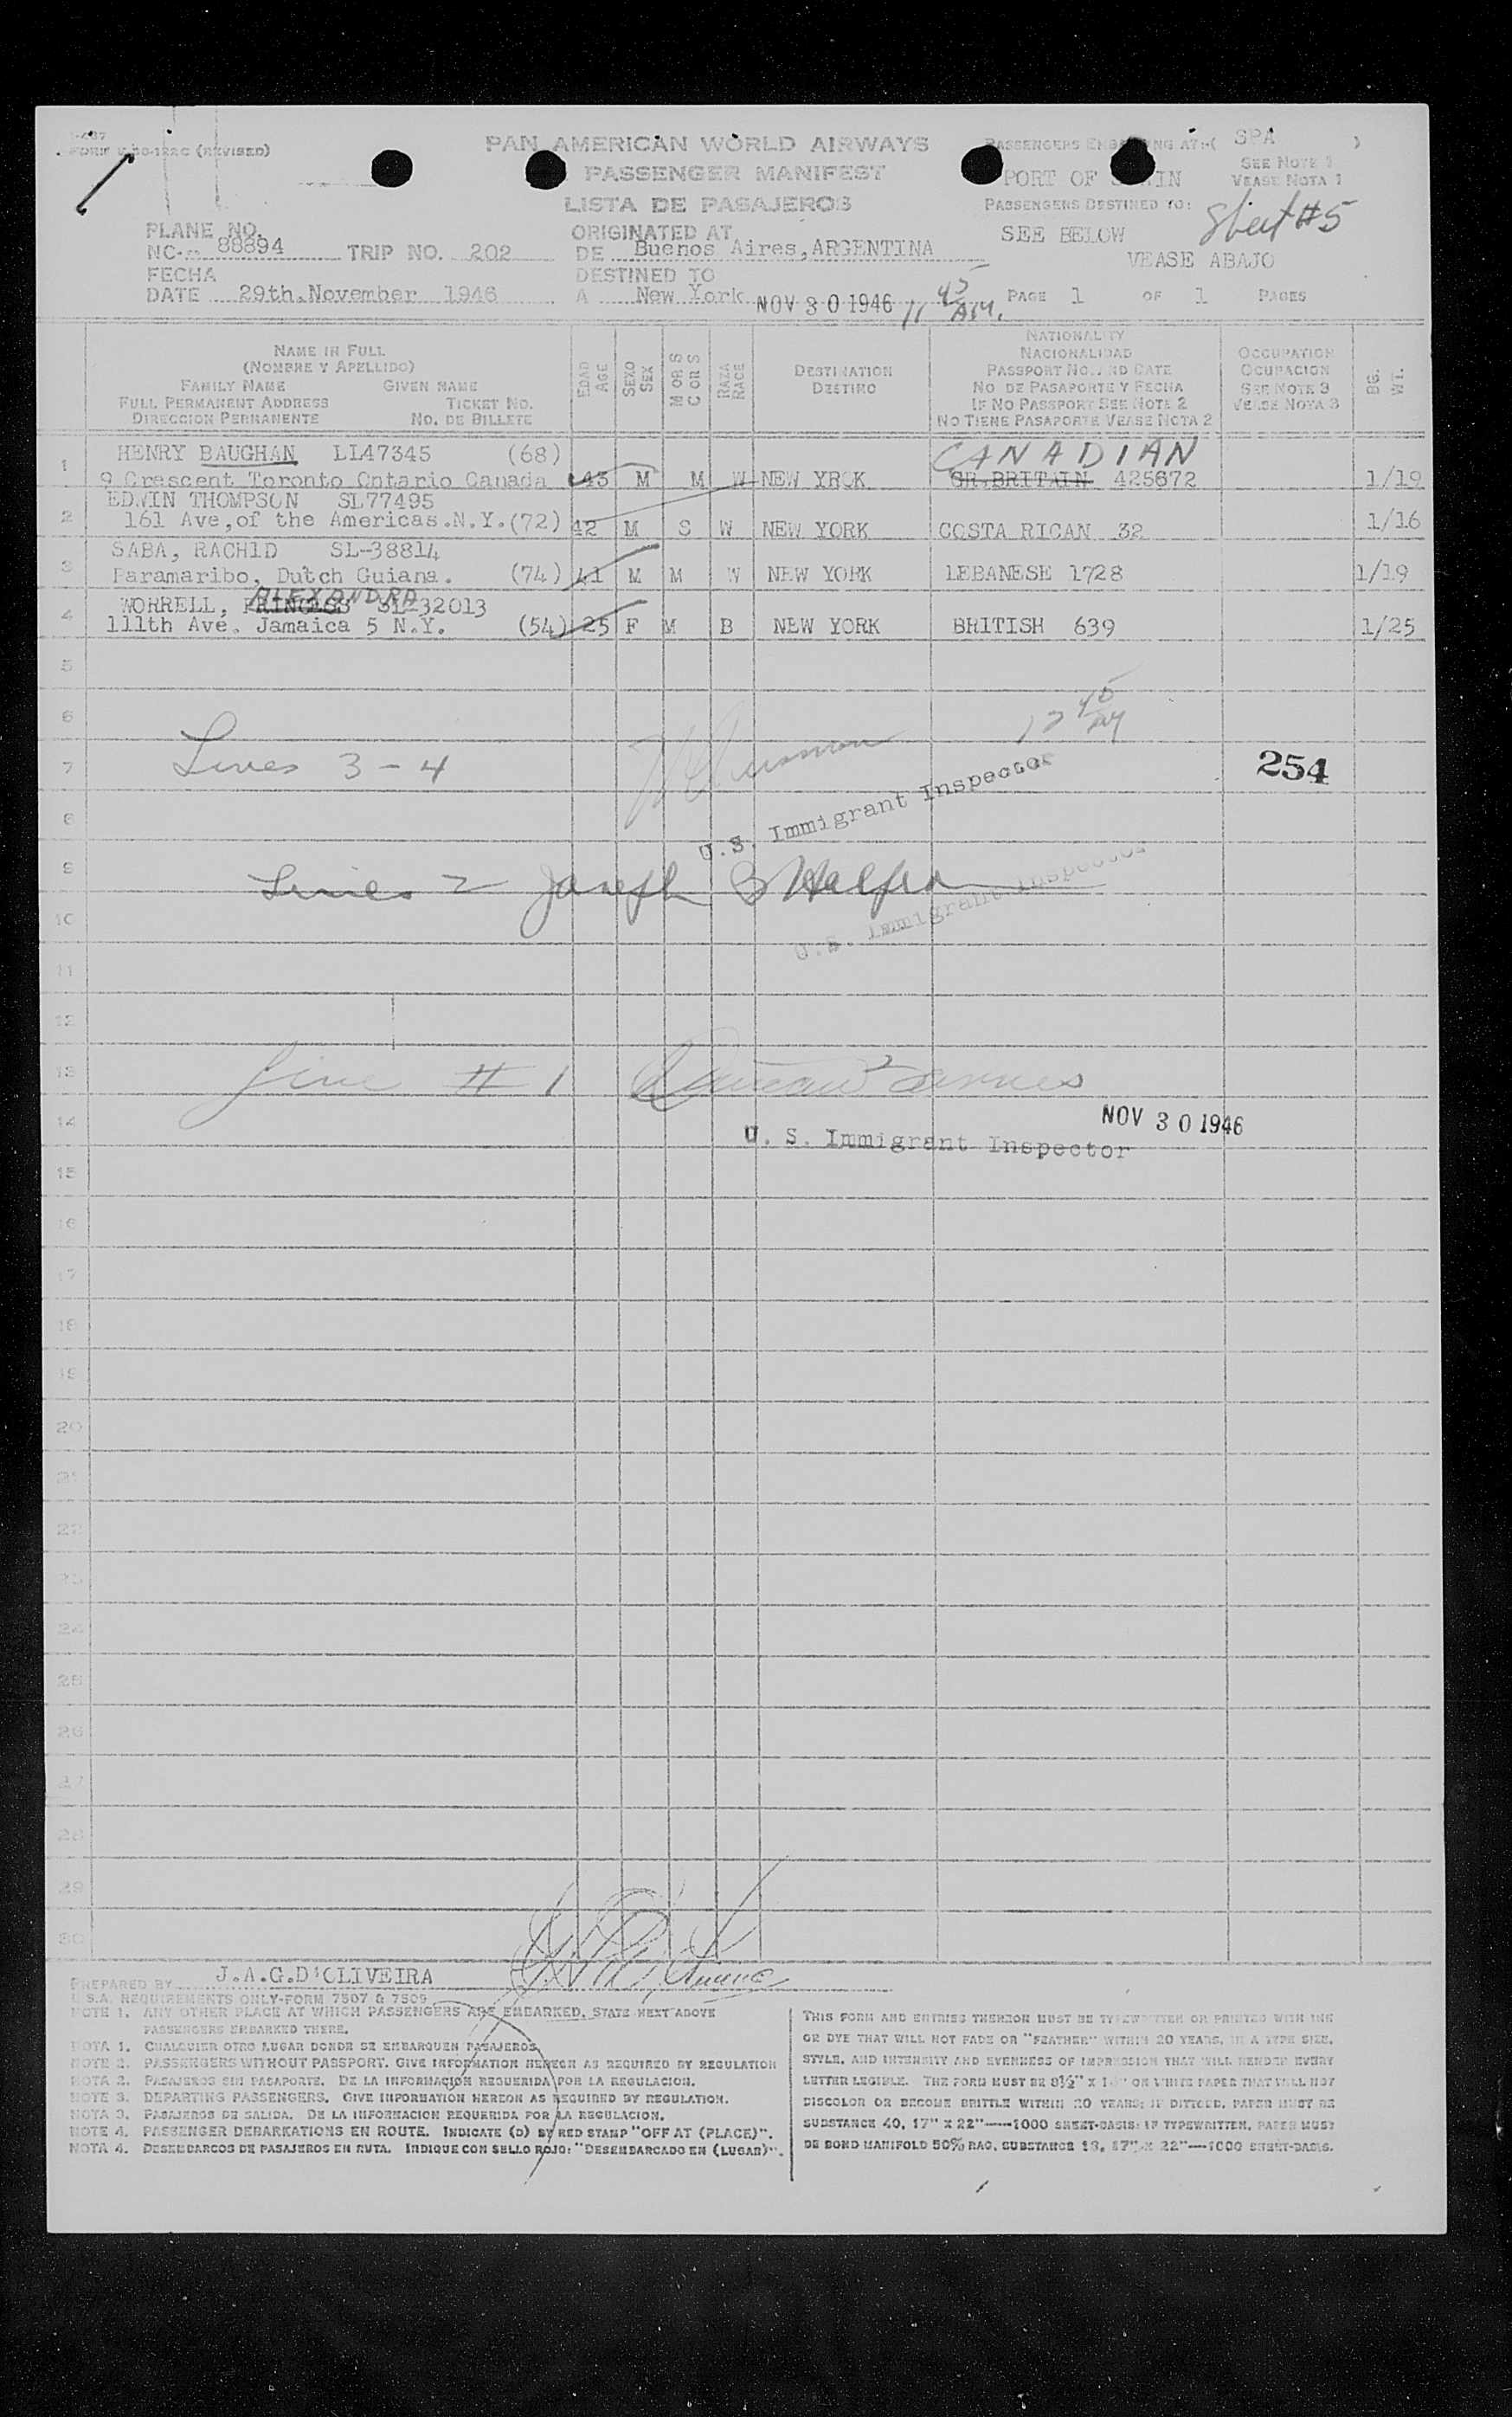 PAN AMERICAN WORLD AIRWAYS
PASSENGER MANIFEST
LISTA DE PASAJEROS
(REVISED)
PASSENGERS EMBARKING AT:-( SPA )
SEE NOTE 1
VEASE NOTA 1
PORT OF SPAIN
PASSENGERS DESTINED TO:
SEE BELOW
VEASE ABAJO
Sheet #5
PLANE NO.
NC-- 88894 TRIP NO. 202
ORIGINATED AT
DE Buenos Aires,ARGENTINA
FECHA
DATE 29th.November 1946
DESTINED TO
A New York
NOV 30 1946 11 45 AM.
PAGE 1 OF 1 PAGES
NAME IN FULL
(NOMBRE Y APELLIDO)
FAMILY NAME GIVEN NAME
FULL PERMANENT ADDRESS TICKET NO.
DIRECCION PERMANENTE NO. DE BILLETE
EDAD AGE
SEXO SEX
M OR S
C OR S
RAZA RACE
DESTINATION
DESTINO
NATIONALITY
NACIONALIDAD
PASSPORT NO. AND DATE
NO DE PASAPORTE Y FECHA
IF NO PASSPORT SEE NOTE 2
NO TIENE PASAPORTE VEASE NOTA 2
OCCUPATION
OCUPACION
SEE NOTE 3
VEASE NOTA 3
BG. WT.
CANADIAN
1 HENRY BAUGHAN LI47345 (68)
9 Crescent Toronto Ontario Canada 43 M M W NEW YROK GR.BRITAIN 425672 1/19
EDWIN THOMPSON SL77495
2 161 Ave,of the Americas.N.Y.(72) 42 M S W NEW YORK COSTA RICAN 32 1/16
SABA, RACHID SL-38814
3 Paramaribo, Dutch Guiana. (74) 41 M M W NEW YORK LEBANESE 1728 1/19
ALEXANDRA
WORRELL, PRINCESS SL-32013
4 111th Ave. Jamaica 5 N.Y. (54) 25 F M B NEW YORK BRITISH 639 1/25
5
6
7 Lines 3-4
254
U.S. Immigrant Inspector
8
9 Lines 2 Joseph B Halfen
10
U.S. Immigrant Inspector
11
12
13 Line #1
14
NOV 30 1946
U. S. Immigrant Inspector
15
16
17
18
19
20
21
22
23
24
25
26
27
28
29
30
PREPARED BY J.A.G.D'OLIVEIRA
U.S.A. REQUIREMENTS ONLY-FORM 7507 & 7509
NOTE 1. ANY OTHER PLACE AT WHICH PASSENGERS ARE EMBARKED, STATE NEXT ABOVE
PASSENGERS EMBARKED THERE.
NOTA 1. CUALQUIER OTRO LUGAR DONDE SE EMBARQUEN PASAJEROS
NOTE 2. PASSENGERS WITHOUT PASSPORT. GIVE INFORMATION HEREON AS REQUIRED BY REGULATION
NOTA 2. PASAJEROS SIN PASAPORTE. DE LA INFORMACION REQUERIDA POR LA REGULACION.
NOTE 3. DEPARTING PASSENGERS. GIVE INFORMATION HEREON AS REQUIRED BY REGULATION.
NOTA 3. PASAJEROS DE SALIDA. DE LA INFORMACION REQUERIDA POR LA REGULACION.
NOTE 4. PASSENGER DEBARKATIONS EN ROUTE. INDICATE (D) BY RED STAMP "OFF AT (PLACE)".
NOTA 4. DESEMBARCOS DE PASAJEROS EN RUTA. INDIQUE CON SELLO ROJO: "DESEMBARCADO EN (LUGAR)".
THIS FORM AND ENTRIES THEREON MUST BE TYPEWRITTEN OR PRINTED WITH INK
OR DYE THAT WILL NOT FADE OR "FEATHER" WITHIN 20 YEARS, IN A TYPE SIZE,
STYLE, AND INTENSITY AND EVENNESS OF IMPRESSION THAT WILL RENDER EVERY
LETTER LEGIBLE. THE FORM MUST BE 8½" X ON WHITE PAPER THAT WILL NOT
DISCOLOR OR BECOME BRITTLE WITHIN 20 YEARS; IF DITTOED, PAPER MUST BE
SUBSTANCE 40, 17" X 22"----1000 SHEET-BASIS; IF TYPEWRITTEN, PAPER MUST
BE BOND MANIFOLD 50% RAG, SUBSTANCE 18, 17" X 22"----1000 SHEET-BASIS.